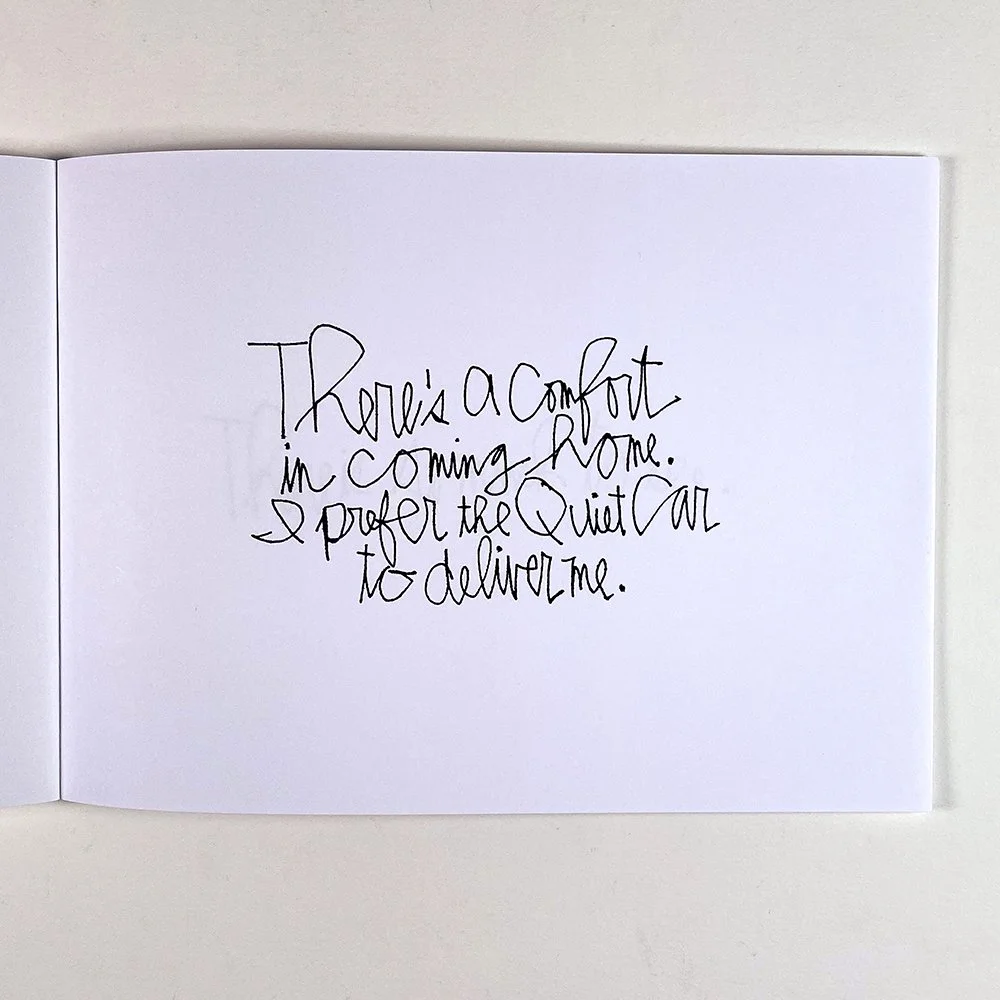 There's a comfort
in coming home.
I prefer the Quiet Car
to deliver me.